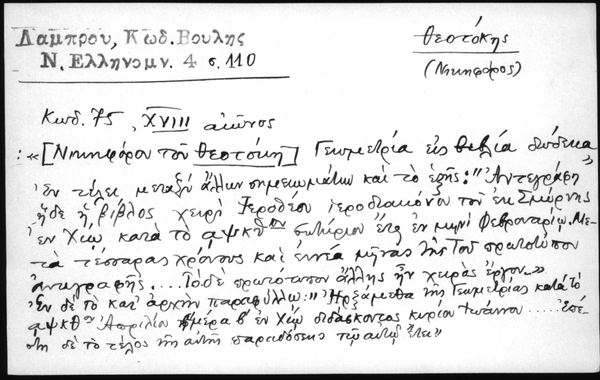 Λαμπρου, Κωδ. Βουλης
Ν. Ελληνομν. 4 σ. 110
Θεοτόκης
(Νικηφόρος)
Κωδ. 75, XVIII αἰῶνος
: «[Νικηφόρου τοῦ Θεοτόκη] Γεωμετρία εἰς βιβλία δώδεκα»
Ἐν τέλει μεταξὺ ἄλλων σημειωμάτων καὶ τὸ ἑξῆς: "Ἀντεγράφη
ἥδε ἡ βίβλος χειρὶ Ἱεροθέου ἱεροδιακόνου τοῦ ἐκ Σμύρνης
ἐν Χίῳ κατὰ τὸ σωτήριον ἔτος ἐν μηνὶ Φεβρουαρίῳ. Με-
τὰ τέσσαρας χρόνους καὶ ἐννέα μῆνας τῆς τοῦ πρωτοτύπου
ἀντιγραφῆς.... Τὸ δὲ πρωτότυπον ἄλλης ἦν χειρὸς ἔργον.»
Ἐν δὲ τῷ κατ' ἀρχὴν παραφύλλῳ: "Ἠρξάμεθα τῆς Γεωμετρίας κατὰ τὸ
αψκθ Ἀπριλίου ἡμέρα β ἐν Χίῳ διδάσκοντος κυρίου Ἰωάννου.....
δὲ τὸ τέλος τῆς αὐτῆς παραδόσεως τῷ αὐτῷ ἔτει»